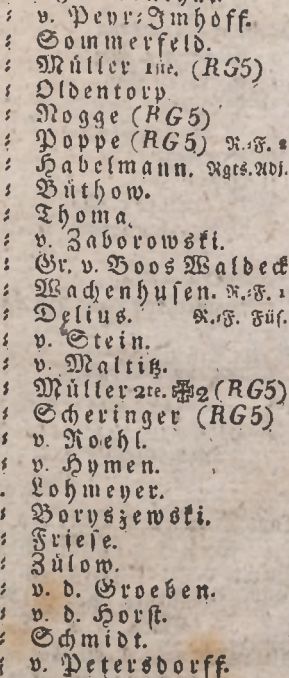 : v. Peyr-Imhoff.
: Sommerfeld.
: Müller 1ste. (RG5)
: Oldentorp.
: Nogge (RG5)
: Poppe (RG5) R.-F. 2
: Habelmann. Rgts.Adj.
: Büthow.
: Thoma.
: v. Zaborowski.
: Gr. v. Boos Waldeck
: Wachenhusen. R.-F. 1
: Delius. R.-F. Füs.
: v. Stein.
: v. Maltitz.
: Müller 2te. 2 (RG5)
: Scheringer (RG5)
: v. Roehl.
: v. Hymen.
. Lohmeyer.
: Boryszewski.
: Friese.
: Zülow.
: v. d. Groeben.
: v. d. Horst.
: Schmidt.
: v. Petersdorff.